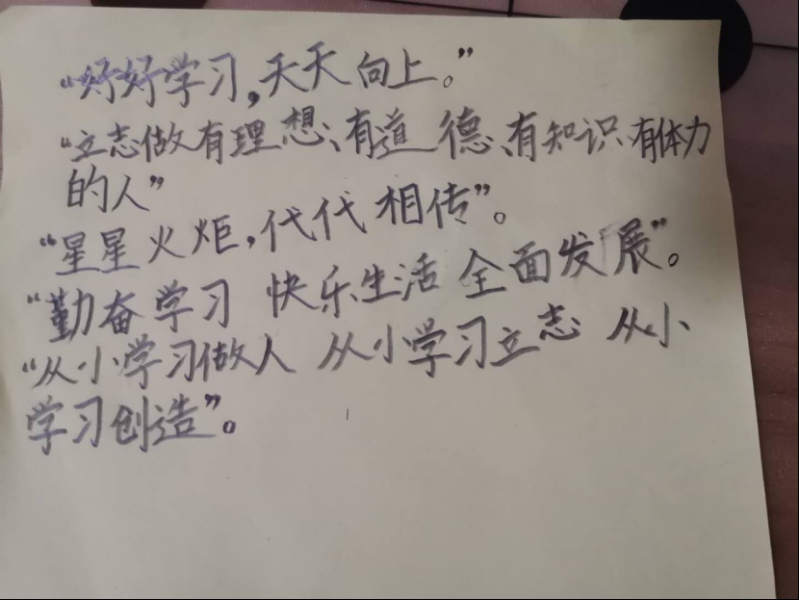 “好好学习,天天向上。”
“立志做有理想、有道德、有知识、有体力
的人”
“星星火炬,代代相传”。
“勤奋学习 快乐生活 全面发展”。
“从小学习做人 从小学习立志 从小
学习创造”。